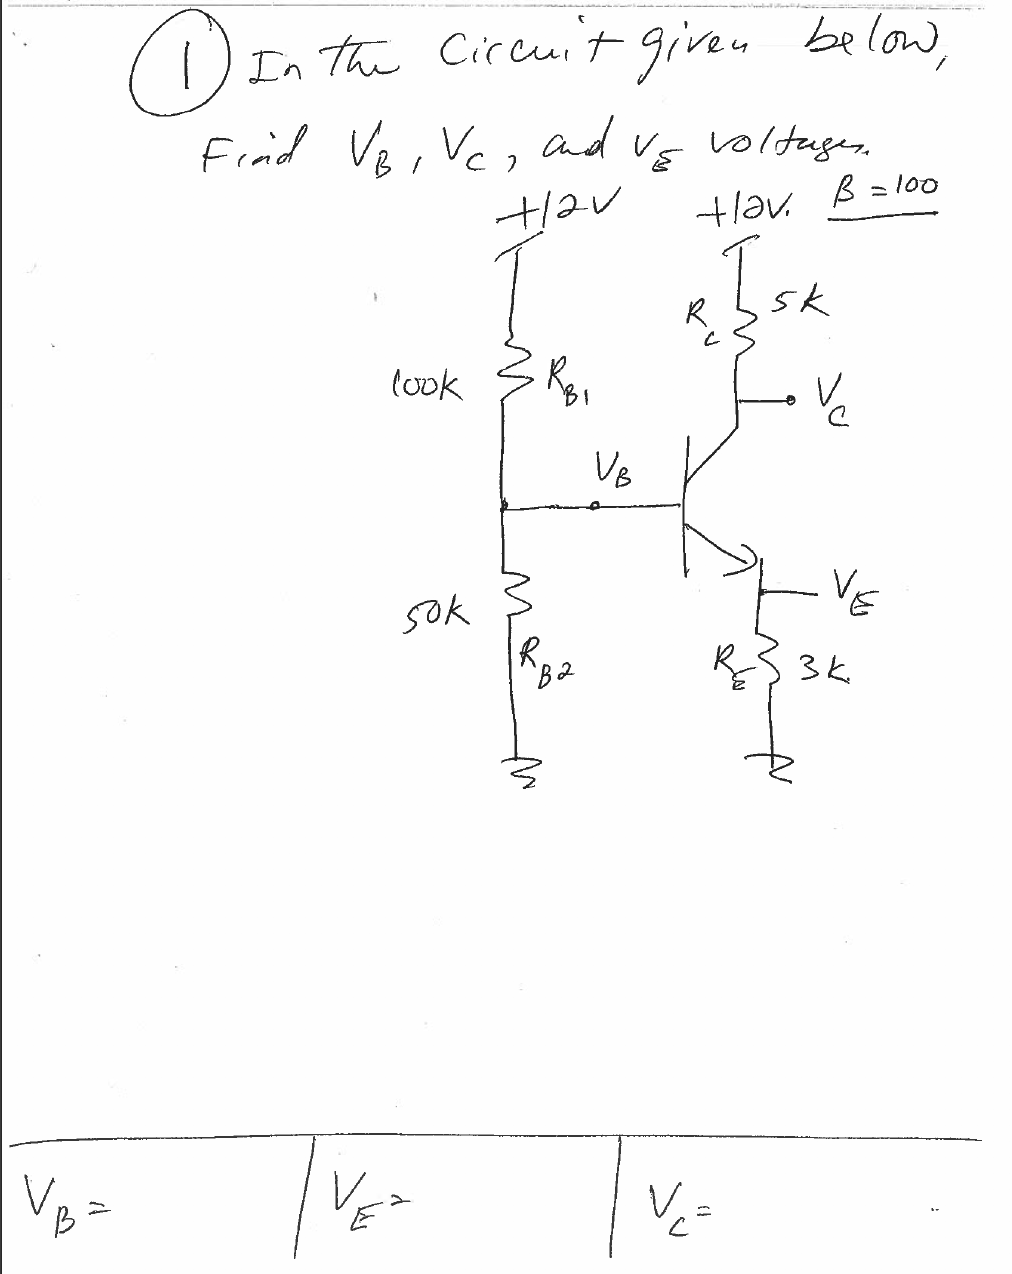 1 In the Circuit given below,
Find VB, VC, and VE voltages.
+12V +12V. β = 100
RC 5K
100k RB1
VC
VB
50K
VE
RB2
RE 3K
VB = VE = VC =